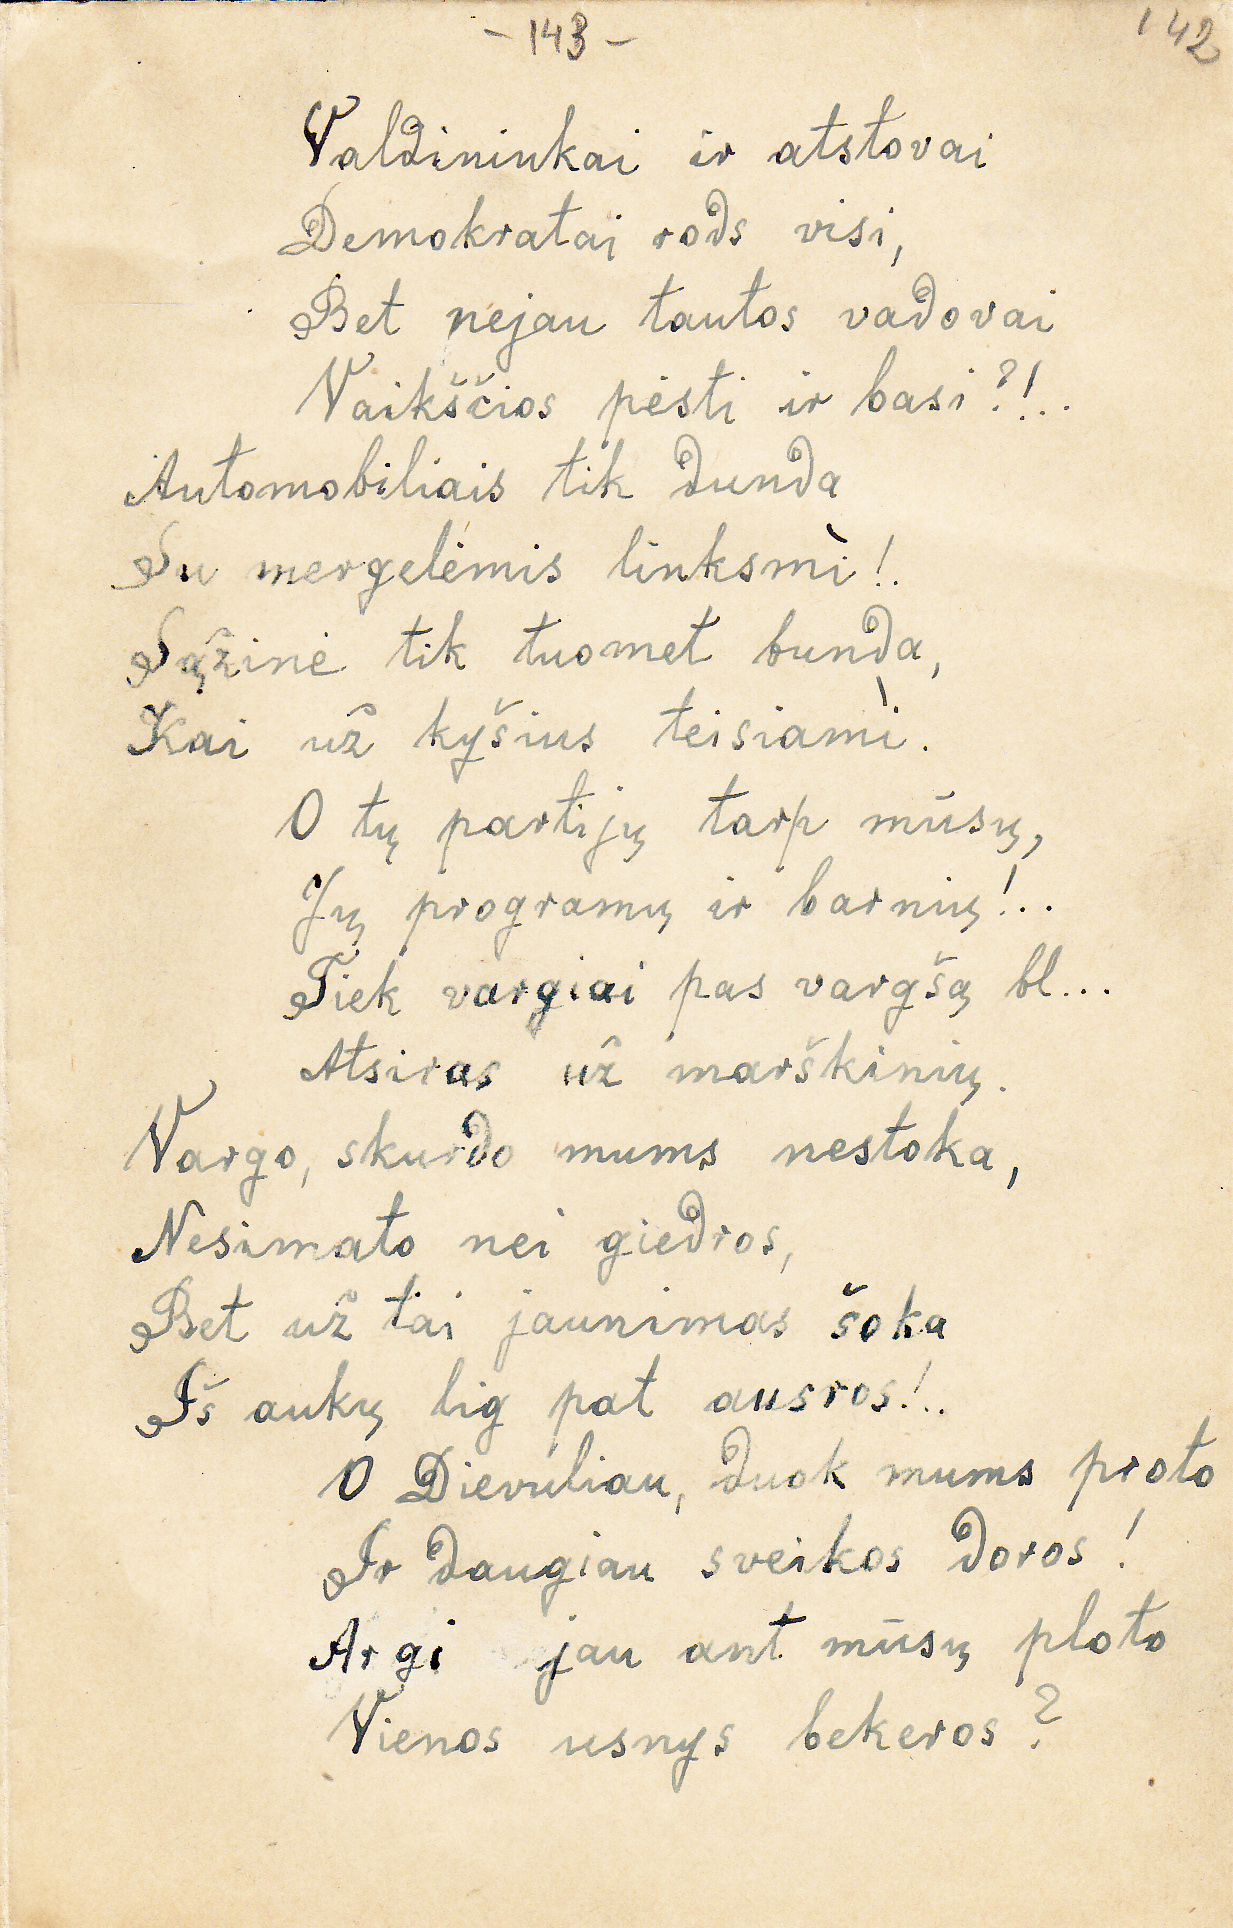 - 143 -
142
Valdininkai ir atstovai
Demokratai rods visi,
Bet nejau tautos vadovai
Vaikščios pėsti ir basi?!..
Automobiliais tik dunda
Su mergelėmis linksmì!.
Sąžinė tik tuomet bunda,
Kai už kyšius teisiamì.
O tų partijų tarp mūsų,
Jų programų ir barnių!..
Tiek vargiai pas vargšą bl...
Atsiras už marškinių.
Vargo, skurdo mums nestoka,
Nesimato nei giedros,
Bet už tai jaunimas šoka
Iš aukų lig pat ausros!..
O Dievuliau, duok mums proto
Ir daugiau sveikos doros!
Argi jau ant mūsų ploto
Vienos usnys bekeros?